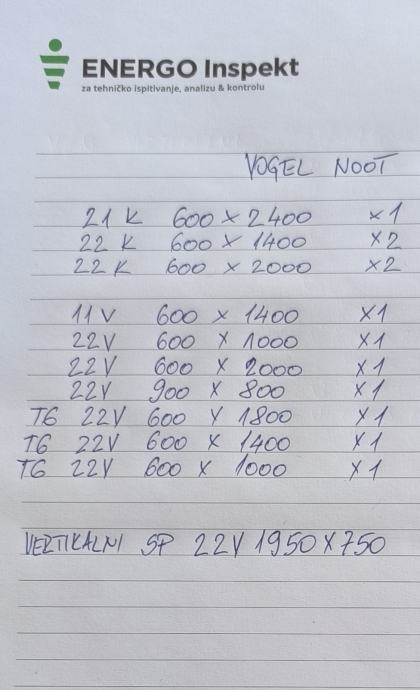 ENERGO Inspekt
za tehničko ispitivanje, analizu & kontrolu
VOGEL NOOT
21 K 600 x 2400 x1
22 K 600 x 1400 x2
22 K 600 x 2000 x2
11 V 600 x 1400 x1
22V 600 x 1000 x1
22V 600 x 2000 x1
22V 900 x 800 x1
T6 22V 600 x 1800 x1
T6 22V 600 x 1400 x1
T6 22V 600 x 1000 x1
VERTIKALNI SP 22V 1950 x 750